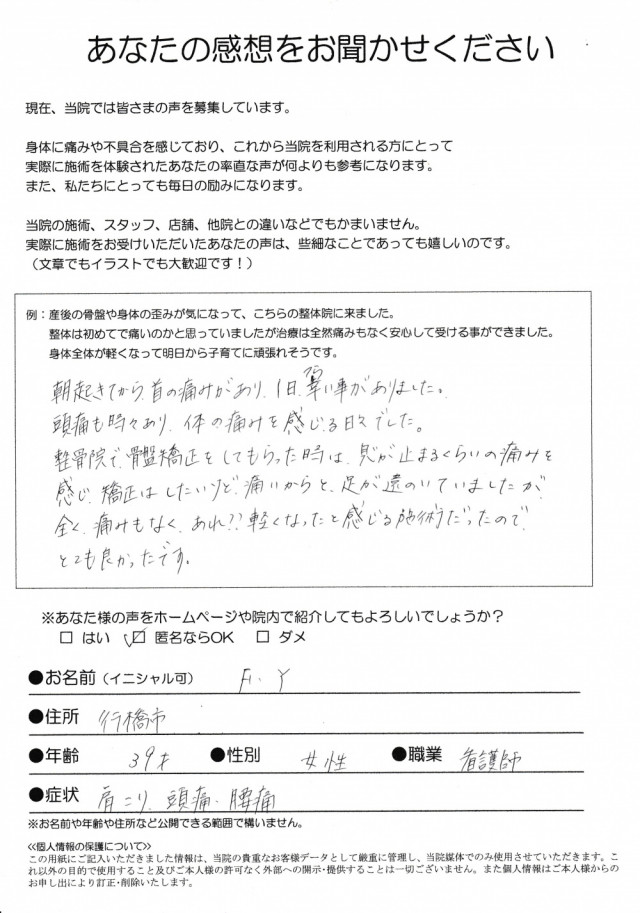 あなたの感想をお聞かせください
現在、当院では皆さまの声を募集しています。
身体に痛みや不具合を感じており、これから当院を利用される方にとって
実際に施術を体験されたあなたの率直な声が何よりも参考になります。
また、私たちにとっても毎日の励みになります。
当院の施術、スタッフ、店舗、他院との違いなどでもかまいません。
実際に施術をお受けいただいたあなたの声は、些細なことであっても嬉しいのです。
（文章でもイラストでも大歓迎です！）
例：産後の骨盤や身体の歪みが気になって、こちらの整体院に来ました。
整体は初めてで痛いのかと思っていましたが治療は全然痛みもなく安心して受ける事ができました。
身体全体が軽くなって明日から子育てに頑張れそうです。
朝起きてから、首の痛みがあり、1日、辛い事がありました。
頭痛も時々あり、体の痛みを感じる日々でした。
整骨院で、骨盤矯正をしてもらった時は、息が止まるくらいの痛みを
感じ、矯正はしたいけど、痛いからと、足が遠のいていましたが、
全く、痛みもなく、あれ??軽くなったと感じる施術だったので、
とても良かったです。
※あなた様の声をホームページや院内で紹介してもよろしいでしょうか？
□ はい ☑ 匿名ならOK □ ダメ
●お名前（イニシャル可） F.Y
●住所 行橋市
●年齢 39才 ●性別 女性 ●職業 看護師
●症状 肩こり、頭痛・腰痛
※お名前や年齢や住所など公開できる範囲で構いません。
≪個人情報の保護について≫
この用紙にご記入いただきました情報は、当院の貴重なお客様データとして厳重に管理し、当院媒体でのみ使用させていただきます。こ
れ以外の目的で使用すること及びご本人様の許可なく外部への開示・提供することは一切ございません。また個人情報はご本人様からの
お申し出により訂正・削除いたします。